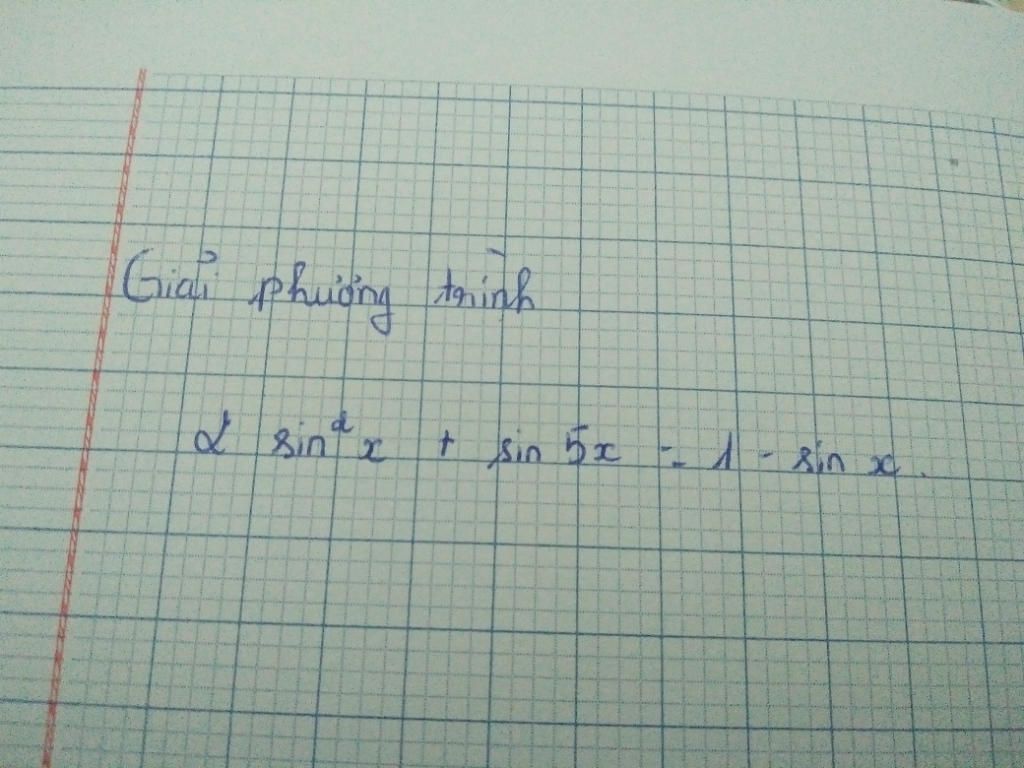 Giải phương trình
2 sin²x + sin 5x = 1 - sin x.